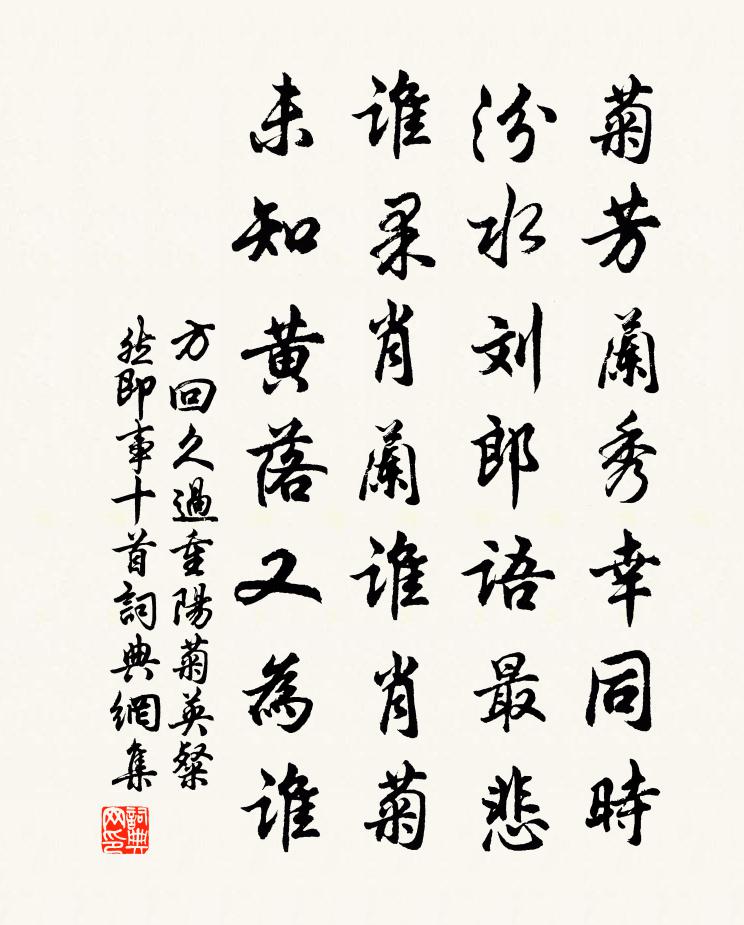 菊芳蘭秀幸同時
汾水刘郎語最悲
誰果肖蘭誰肖菊
未知黄落又為誰
方回久過重陽菊英粲
然即事十首詞典網集
詞典网印